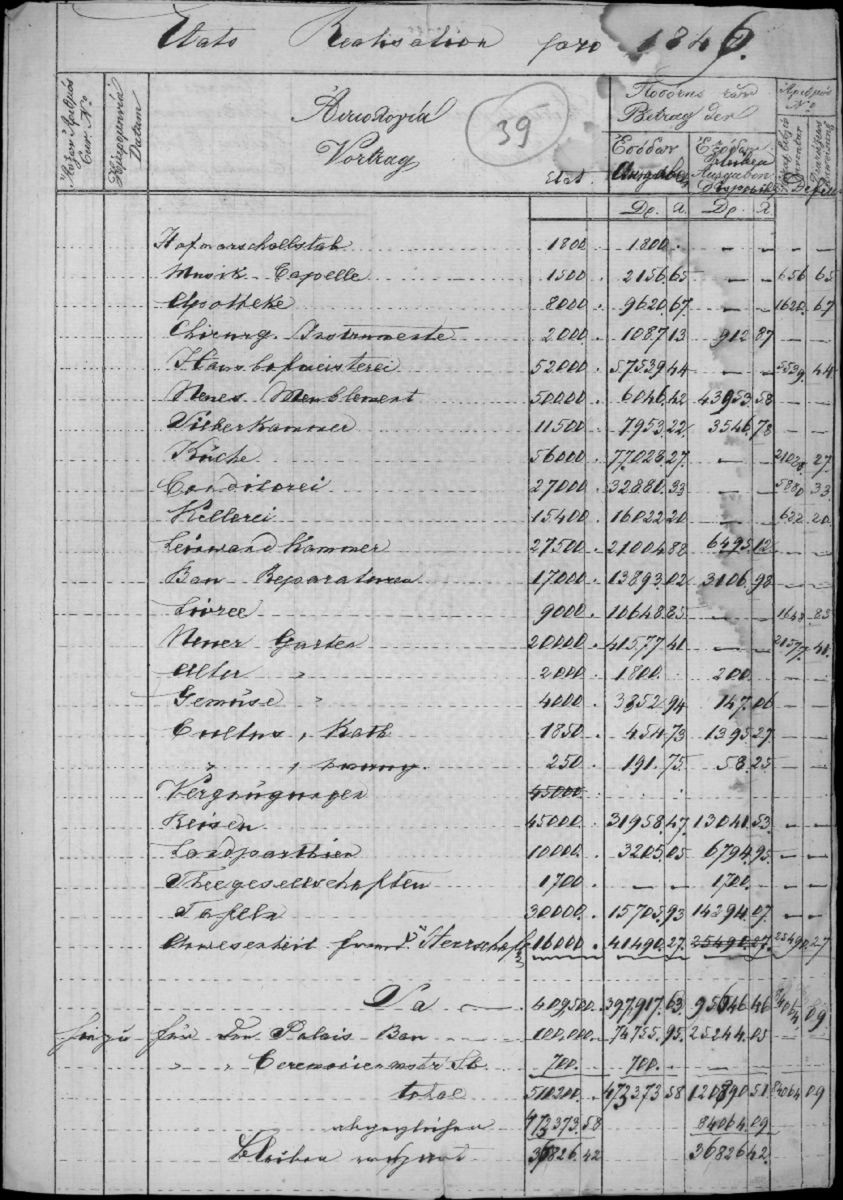 Etats Realisation pro 1846.
39
Αύξων Αριθμός Cur. Nº
Ημερομηνία Datum
Αιτιολογία
Vortrag
Etat
Ποσότης των
Betrag der
Εσόδων
Ausgaben
Εξόδων
Ausgaben
Αριθμός Nº
Δρ. Λ. Δρ. Λ
Hofmarschallstab 1800. 1800. — — — —
Musik-Capelle 1500. 2156.65 — — 656 65
Apotheke 8000. 9620.67. — — 1620. 67
Chirurg. Instrumente 2000. 1087.13 912.87 — —
Haushofmeisterei 52000. 57539.44 — — 5539. 44
Neues Meublement 50000. 6046.42 43953.58 — —
Silberkammer 11500. 7953.22. 3546.78 — —
Küche 56000. 77028.27. — — 21028. 27.
Conditorei 27000. 32880.33 — — 5880. 33
Kellerei 15400. 16022.20 — — 622. 20.
Leinwand Kammer 27500. 21004.88 6495.12 — —
Bau-Reparaturen 17000. 13893.02 3106.98 — —
Livree 9000. 10648.85 — — 1648. 85
Neuer Garten 20000. 41577.41 — — 21577. 41.
Alter " 2000. 1800. 200. — —
Gemüse " 4000. 3852.94 147.06 — —
Cultus, Kath 1850. 454.73 1395.27 — —
" , 250. 191.75. 58.25 — —
Vergnügungen 45000
Reisen 45000. 31958.47. 13041.53. — —
Landparthien 10000. 3205.05 6794.95. — —
Theegesellschaften 1700. — — 1700. — —
Tafeln 30000. 15705.93 14294.07. — —
Anwesenheit fremd. Herrschaft 16000. 41490.27. 25490.27. 25490. 27
Sa 409500. 397917.63. 95646.46 84064 09
hinzu für den Palais Bau 100,000. 74755.95. 25244.05
" " Ceremonienmstr Sb. 700. 700.
total 510200. 473373.58 120890.51 84064 09
abgeglichen 473373.58 84064.09
Bleiben 36826.42 36826.42.